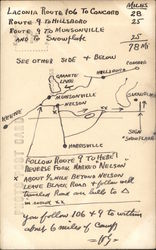 MILES
LACONIA ROUTE 106 TO CONCORD 28
ROUTE 9 TO HILLSBORO 25
ROUTE 9 TO MUNSONVILLE
AND TO SNOWFLAKE 25
78 Mi
SEE OTHER SIDE + BELOW
CONCORD
HILLSBORO
GRANITE
LAKE
MUNSONVILLE
SNOWFLAKE
NELSON
KEENE
SIGN
"SNOWFLAKE"
HARRISVILLE
FOLLOW ROUTE 9 TO HERE!
REVERSE FORK MARKED NELSON
X ABOUT 1/2 MILE BEYOND NELSON
LEAVE BLACK ROAD + follow well
Traveled Road one mile to △
You follow 106 + 9 to within
about 6 miles of Camp